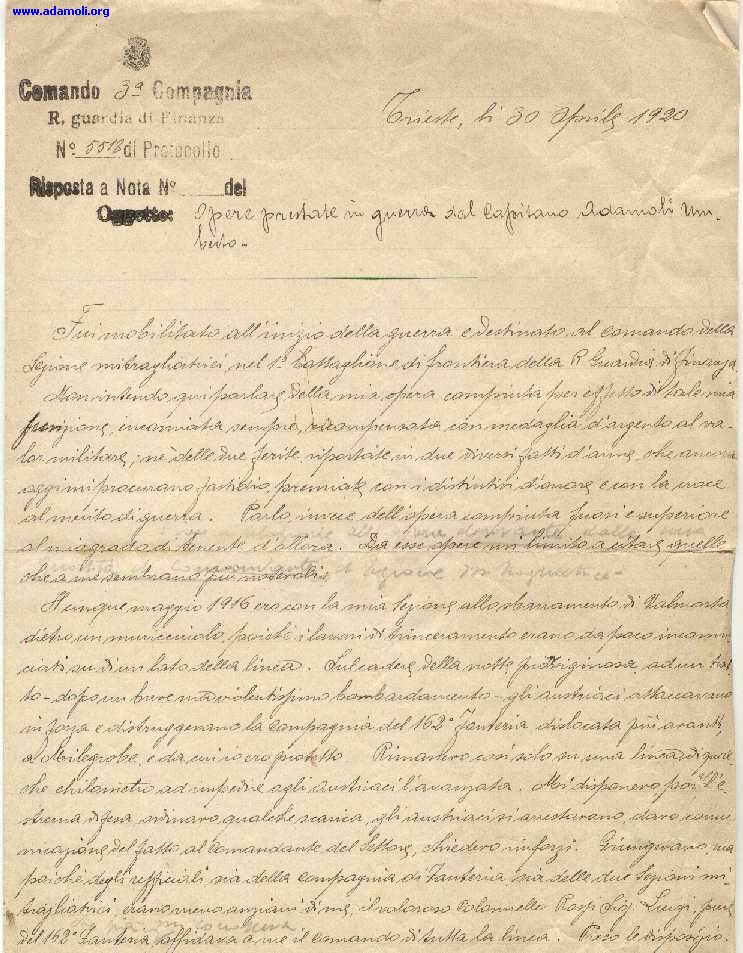 www.adamoli.org
Comando 3ª Compagnia
R. guardia di Finanza
Nº 5518 di Protocollo
Risposta a Nota Nº del
Oggetto:
Trieste, li 30 Aprile 1920
Opere prestate in guerra dal Capitano Adamoli Um-
berto-
Fui mobilitato all'inizio della guerra e destinato al comando della
Sezione mitragliatrici nel 1º Battaglione di frontiera della R Guardia di finanza
Non intendo qui parlare della mia opera compiuta per effetto di tale mia
funzione, incarnata sempre, ricompensata con medaglia d'argento al va-
lor militare; nè delle due ferite riportate in due diversi fatti d'arme, che ancora
oggi mi procurano fastidio, premiate con i distintivi d'onore e con la croce
al merito di guerra. Parlo invece dell'opera compiuta fuori e superiore
al mio grado di tenente d'allora. Da esse opere mi limito a citare quelle
che a me sembrano più notevoli
Il cinque maggio 1916 ero con la mia Sezione allo sbarramento di Valmorta
dietro un muricciuolo, poichè i lavori di trinceramento erano da poco incomin-
ciati su di un lato della linea. Sul cadere della notte ad un trat-
to- dopo un breve ma violentissimo bombardamento- gli austriaci attaccavano
in forza e distruggevano la compagnia del 162º Fanteria dislocata più avanti,
a Milegrobe, e da cui io ero protetto Rimanevo così solo su una linea di qual-
che chilometro ad impedire agli austriaci l'avanzata. Mi disponevo per l'e-
strema difesa, ordinavo qualche scarica, gli austriaci si arrestavano, davo comu-
nicazione del fatto al comandante del Settore, chiedevo rinforzi. Giungevano, ma
poichè degli ufficiali sia della compagnia di Fanteria, sia delle due Sezioni mi-
tragliatrici, erano meno anziani di me, il valoroso Colonnello Sig. Luigi, pure
del 162º Fanteria affidava a me il comando di tutta la linea. Preso le disposizio-